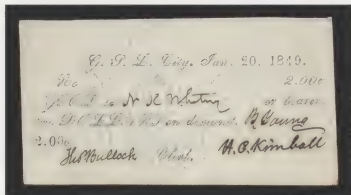 G. S. L. City, Jan. 20, 1849.
No 2.00c
N K Whitney or bearer
on demand. B Young
2.00c
Thos Bullock Clerk. H. C. Kimball